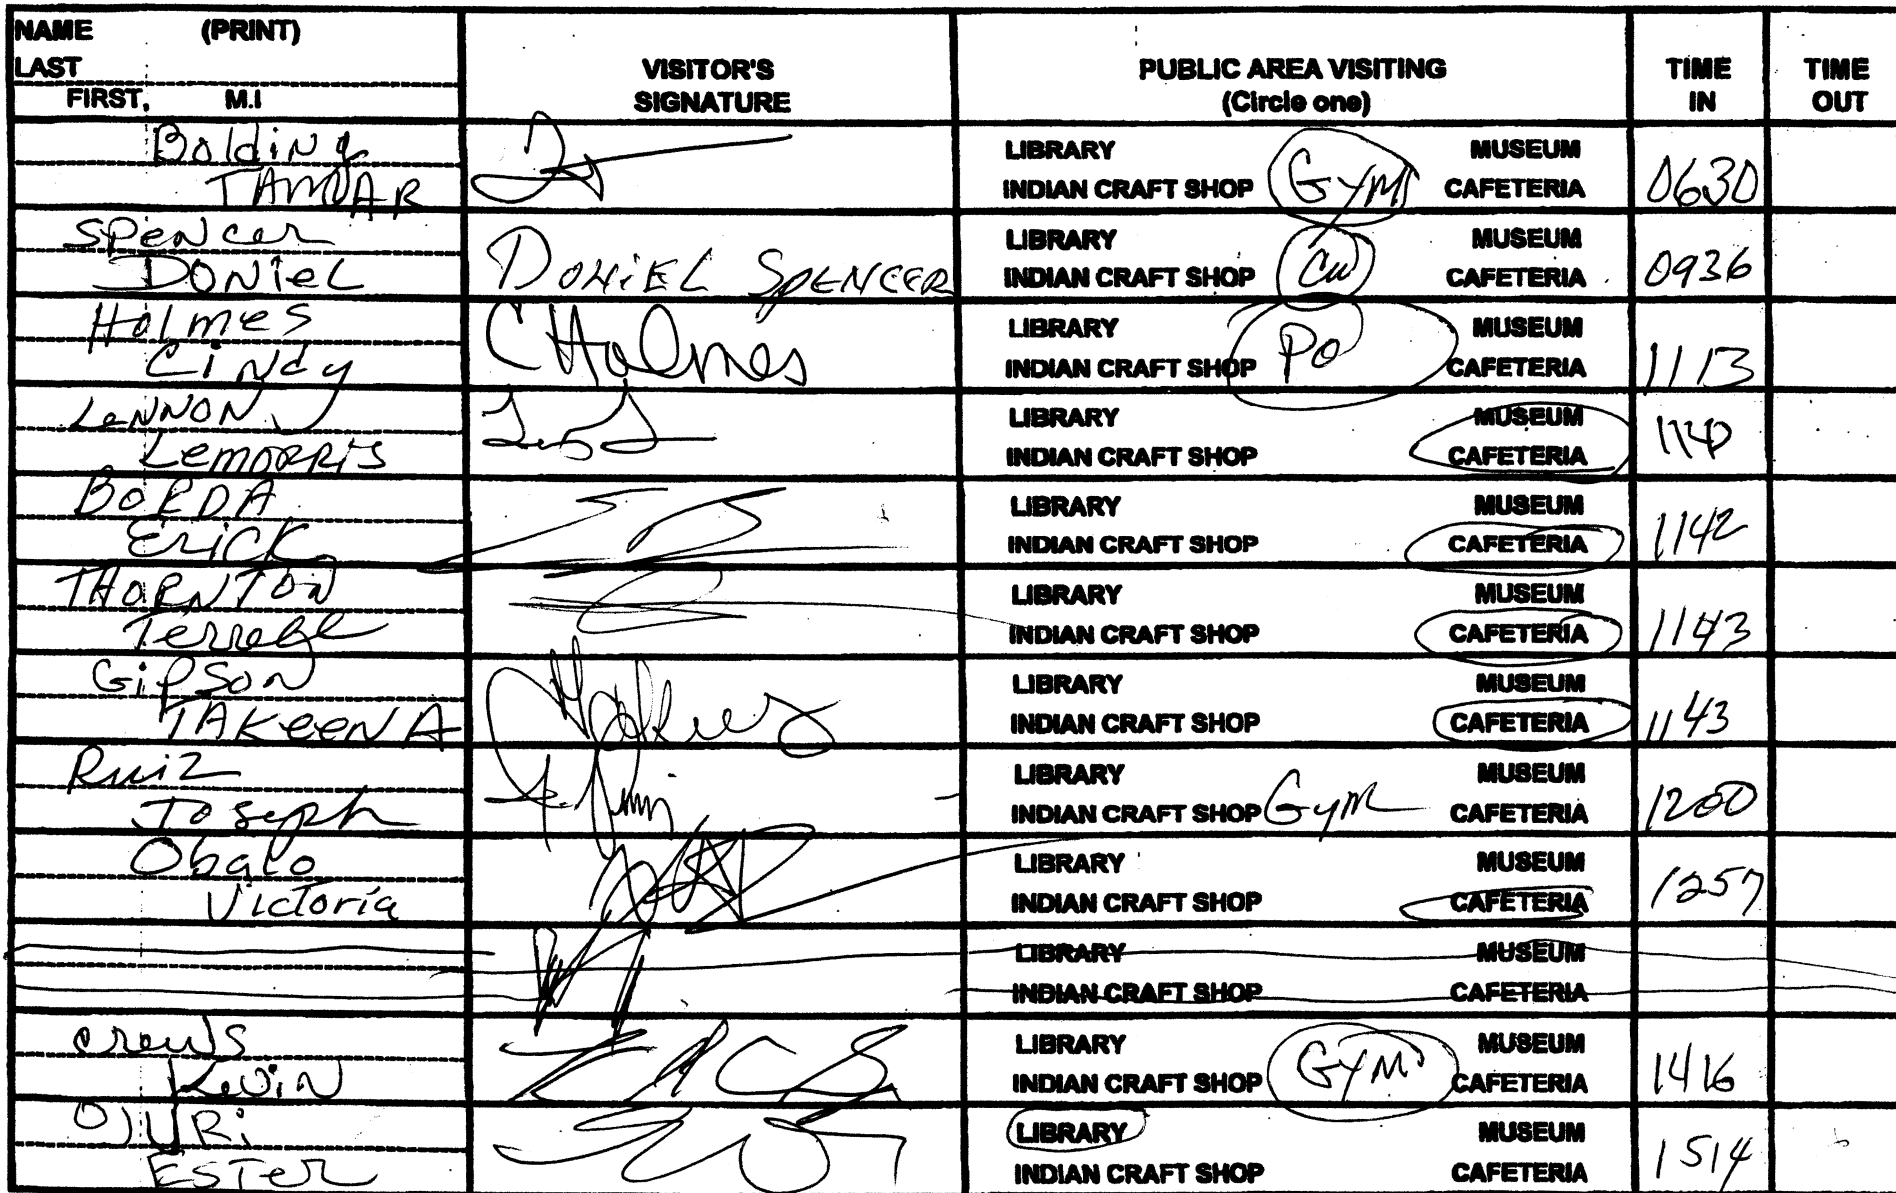 NAME (PRINT)
LAST
FIRST, M.I
VISITOR'S SIGNATURE
PUBLIC AREA VISITING (Circle one)
TIME IN
TIME OUT
Bolding
TAMVAR
LIBRARY MUSEUM
INDIAN CRAFT SHOP GYM CAFETERIA
0630
Spencer
DONIEL
DONIEL SPENCER
LIBRARY MUSEUM
INDIAN CRAFT SHOP CU CAFETERIA
0936
Holmes
Cindy
C Holmes
LIBRARY MUSEUM
INDIAN CRAFT SHOP PO CAFETERIA
1113
LeNNON
Lemorris
LIBRARY MUSEUM
INDIAN CRAFT SHOP CAFETERIA
1140
BORDA
Erick
LIBRARY MUSEUM
INDIAN CRAFT SHOP CAFETERIA
1142
THORNTON
LIBRARY MUSEUM
INDIAN CRAFT SHOP CAFETERIA
1143
GiPSON
TAKeeNA
LIBRARY MUSEUM
INDIAN CRAFT SHOP CAFETERIA
1143
Ruiz
Joseph
LIBRARY MUSEUM
INDIAN CRAFT SHOP GyM CAFETERIA
1200
Obalo
Victoria
LIBRARY MUSEUM
INDIAN CRAFT SHOP CAFETERIA
1257
LIBRARY MUSEUM
INDIAN CRAFT SHOP CAFETERIA
crews
KeviN
LIBRARY MUSEUM
INDIAN CRAFT SHOP GYM CAFETERIA
1416
OJURi
ESTer
LIBRARY MUSEUM
INDIAN CRAFT SHOP CAFETERIA
1514